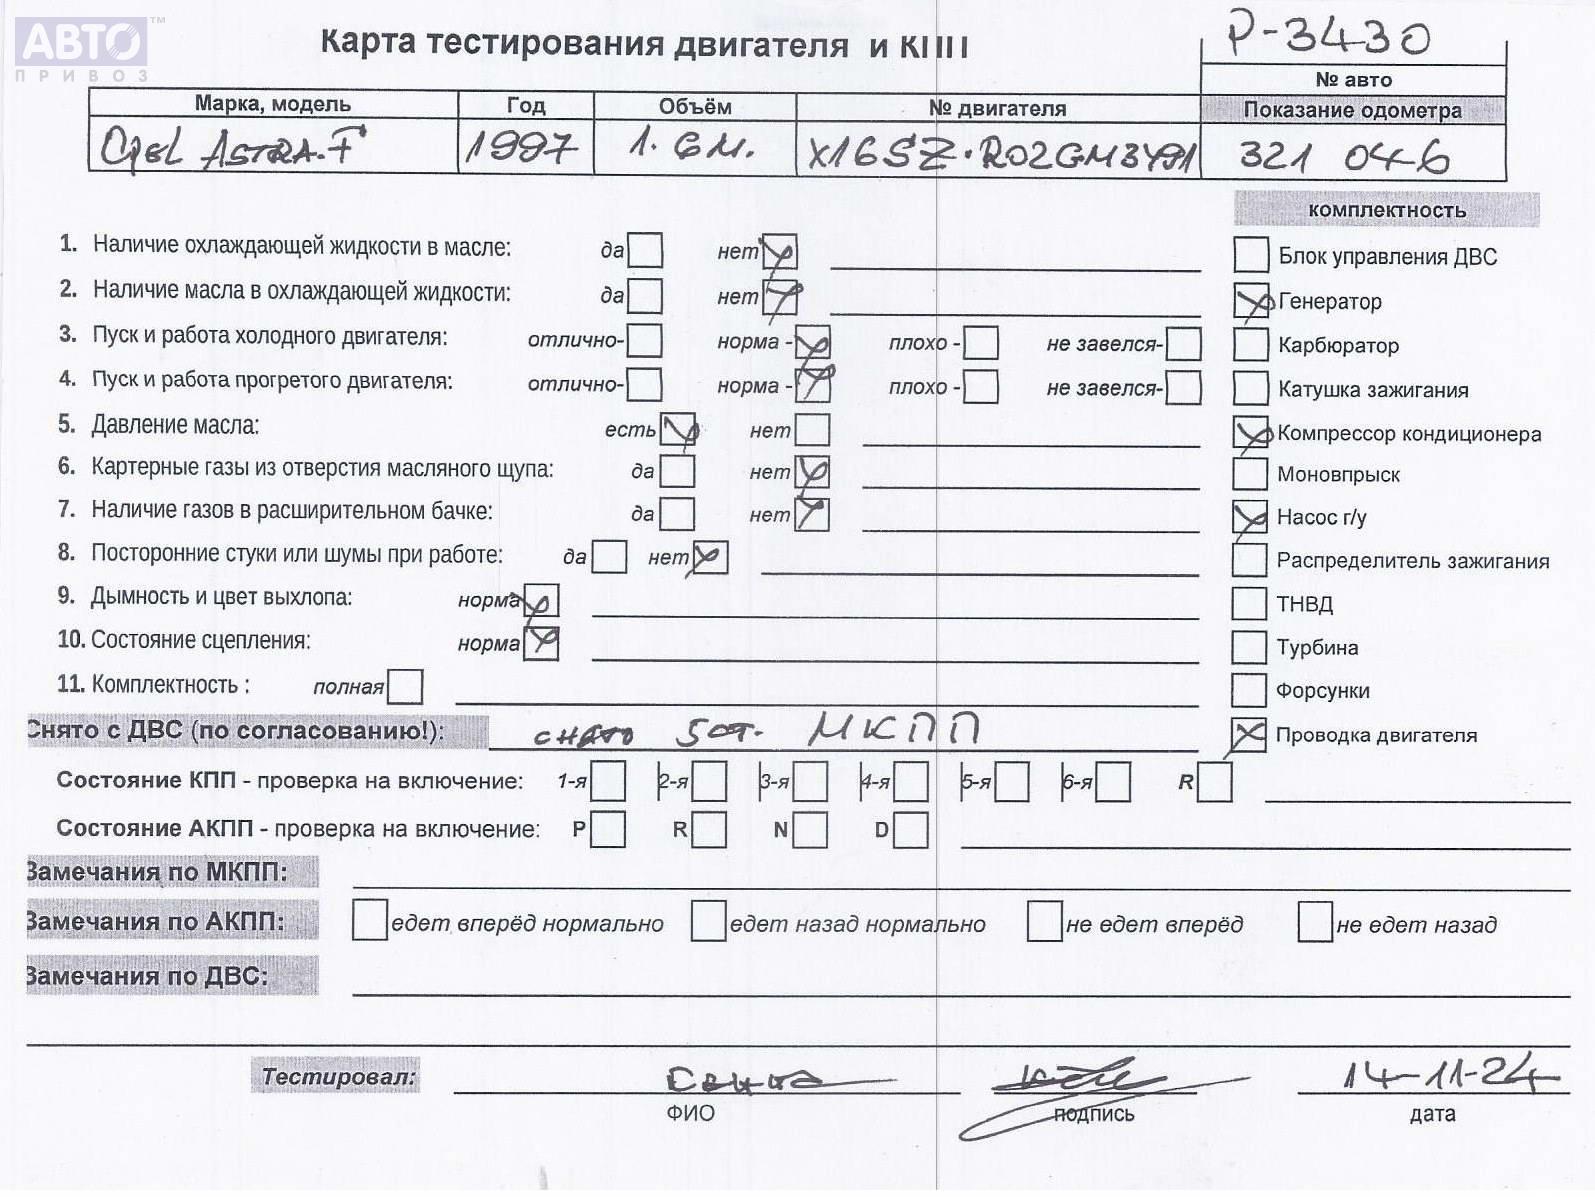 АВТО™
ПРИВОЗ
Карта тестирования двигателя и КПП
P-3430
№ авто
Марка, модель Год Объём № двигателя Показание одометра
Opel Astra.F 1997 1.6м. X16SZ.R02GM3491 321 046
комплектность
1. Наличие охлаждающей жидкости в масле: да нет
Блок управления ДВС
2. Наличие масла в охлаждающей жидкости: да нет
Генератор
3. Пуск и работа холодного двигателя: отлично- норма - плохо - не завелся-
Карбюратор
4. Пуск и работа прогретого двигателя: отлично- норма - плохо - не завелся-
Катушка зажигания
5. Давление масла: есть нет
Компрессор кондиционера
6. Картерные газы из отверстия масляного щупа: да нет
Моновпрыск
7. Наличие газов в расширительном бачке: да нет
Насос г/у
8. Посторонние стуки или шумы при работе: да нет
Распределитель зажигания
9. Дымность и цвет выхлопа: норма
ТНВД
10. Состояние сцепления: норма
Турбина
11. Комплектность : полная
Форсунки
Снято с ДВС (по согласованию!): снято 5ст. МКПП
Проводка двигателя
Состояние КПП - проверка на включение: 1-я 2-я 3-я 4-я 5-я 6-я R
Состояние АКПП - проверка на включение: P R N D
Замечания по МКПП:
Замечания по АКПП: едет вперёд нормально едет назад нормально не едет вперёд не едет назад
Замечания по ДВС:
Тестировал: 14-11-24
ФИО подпись дата